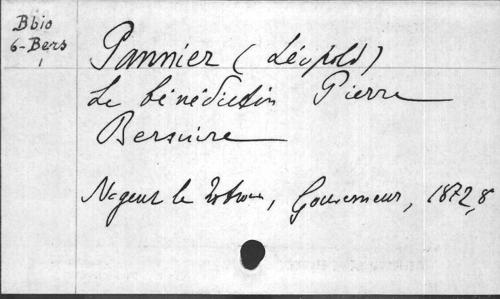 Bbio
6-Bers
1
Pannier (Léopold)
Le bénédictin Pierre
Bersuire
Nogent le Rotrou, Gouverneur, 1872, 8